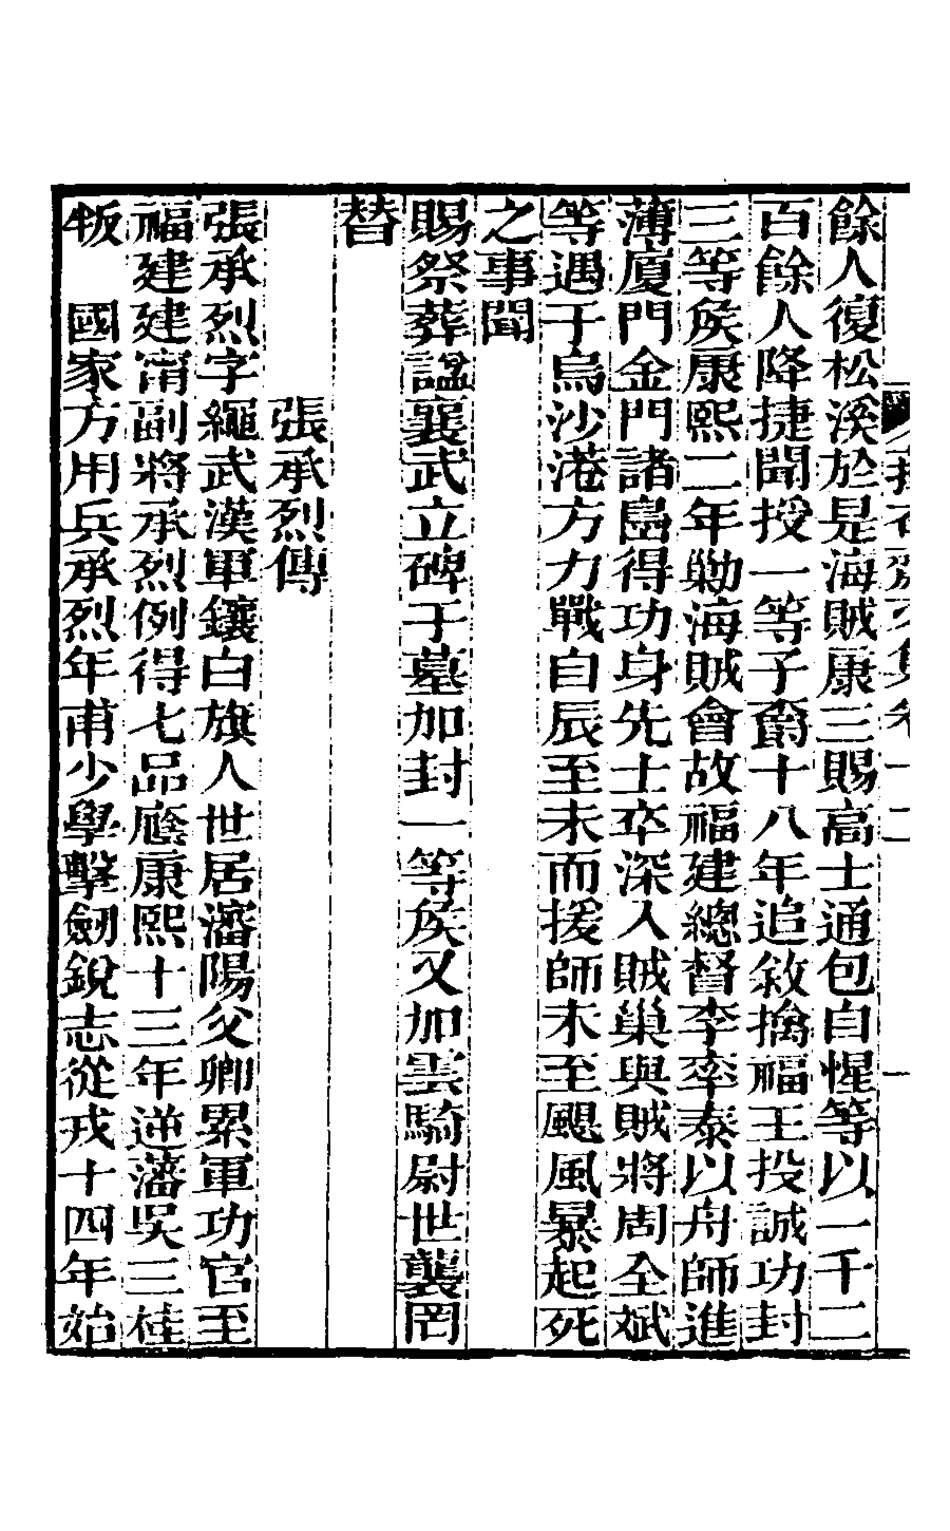 餘人復松溪於是海賊康三賜高士通包自惺等以一千二
百餘人降捷聞授一等子爵十八年追敘擒福王投誠功封
三等矦康熙二年勦海賊會故福建總督李率泰以舟師進
薄廈門金門諸島得功身先士卒深入賊巢與賊將周全斌
等遇于烏沙港方力戰自辰至未而援師未至颶風暴起死
之事聞
賜祭葬謚襄武立碑于墓加封一等矦又加雲騎尉世襲罔
替
張承烈傳
張承烈字繩武漢軍鑲白旗人世居瀋陽父卿累軍功官至
福建建甯副將承烈例得七品廕康熙十三年逆藩吳三桂
叛　國家方用兵承烈年甫少學擊劒銳志從戎十四年始